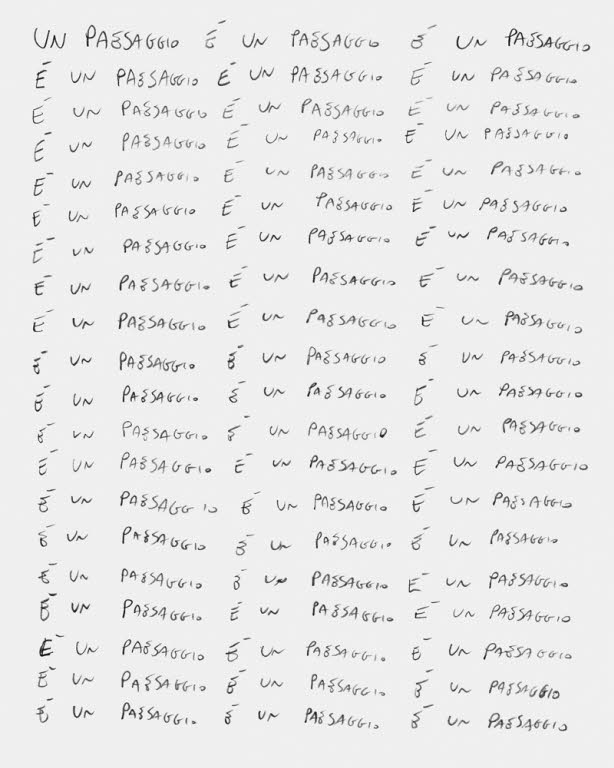 UN PAESAGGIO È UN PAESAGGIO È UN PAESAGGIO
È UN PAESAGGIO È UN PAESAGGIO È UN PAESAGGIO
È UN PAESAGGIO È UN PAESAGGIO È UN PAESAGGIO
È UN PAESAGGIO È UN PAESAGGIO È UN PAESAGGIO
È UN PAESAGGIO È UN PAESAGGIO È UN PAESAGGIO
È UN PAESAGGIO È UN PAESAGGIO È UN PAESAGGIO
È UN PAESAGGIO È UN PAESAGGIO È UN PAESAGGIO
È UN PAESAGGIO È UN PAESAGGIO È UN PAESAGGIO
È UN PAESAGGIO È UN PAESAGGIO È UN PAESAGGIO
È UN PAESAGGIO È UN PAESAGGIO È UN PAESAGGIO
È UN PAESAGGIO È UN PAESAGGIO È UN PAESAGGIO
È UN PAESAGGIO È UN PAESAGGIO È UN PAESAGGIO
È UN PAESAGGIO È UN PAESAGGIO È UN PAESAGGIO
È UN PAESAGGIO È UN PAESAGGIO È UN PAESAGGIO
È UN PAESAGGIO È UN PAESAGGIO È UN PAESAGGIO
È UN PAESAGGIO È UN PAESAGGIO È UN PAESAGGIO
È UN PAESAGGIO È UN PAESAGGIO È UN PAESAGGIO
È UN PAESAGGIO È UN PAESAGGIO È UN PAESAGGIO
È UN PAESAGGIO È UN PAESAGGIO È UN PAESAGGIO
È UN PAESAGGIO È UN PAESAGGIO È UN PAESAGGIO